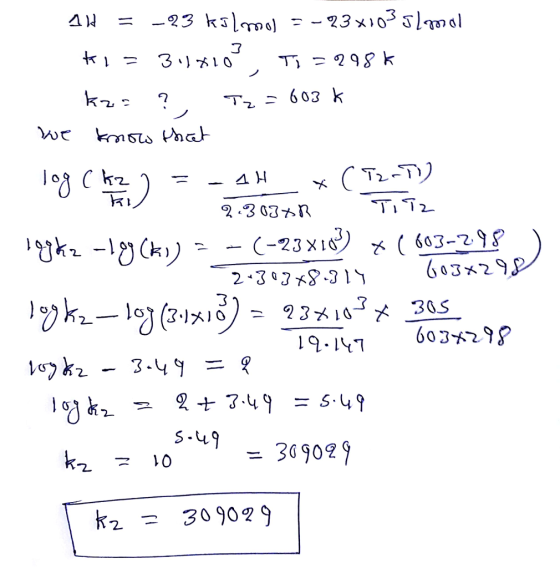 ΔH = -23 kJ/mol = -23×10³ J/mol
k1 = 3.1×10³, T1 = 298 K
k2 = ?, T2 = 603 K
we know that
log (k2/k1) = - ΔH/2.303×R × (T2-T1)/T1T2
logk2 - log(k1) = -(-23×10³)/2.303×8.314 × (603-298/603×298)
logk2 - log(3.1×10³) = 23×10³/19.147 × 305/603×298
logk2 - 3.49 = 2
logk2 = 2 + 3.49 = 5.49
k2 = 10^5.49 = 309029
k2 = 309029